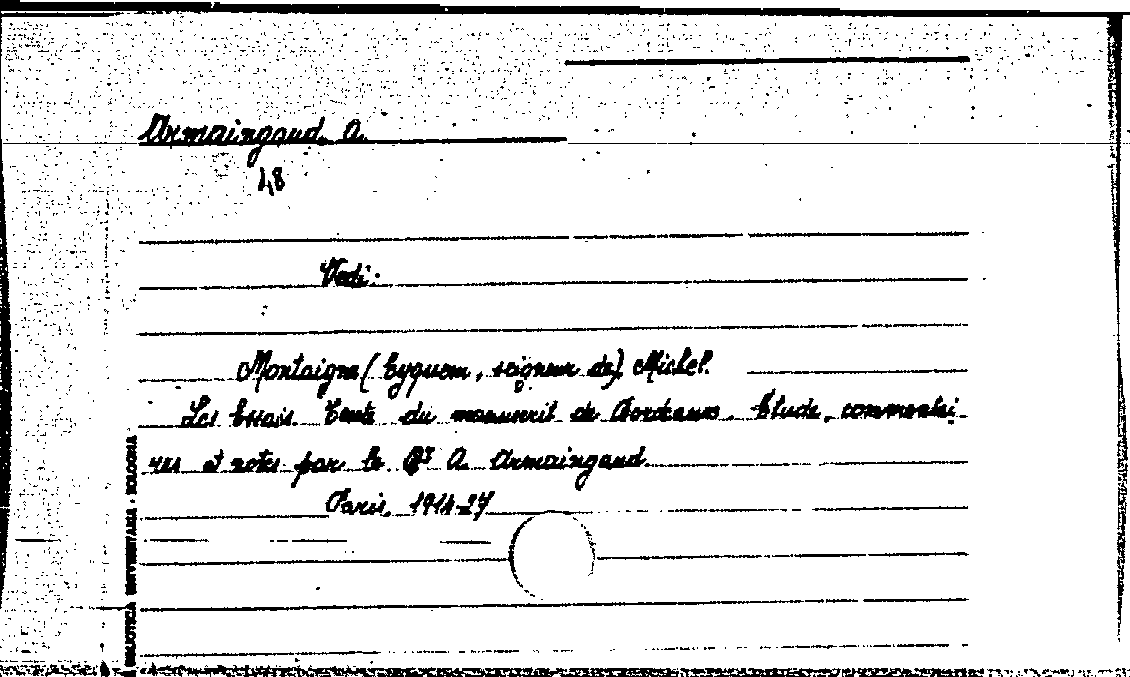 Armaingaud, A.
48
Vedi:
Montaigne (Eyquem, seigneur de), Michel.
Les Essais. Texte du manuscrit de Bordeaux. Etude, commentai
res et notes par le Dr A. Armaingaud.
Paris, 1914-27
BIBLIOTECA UNIVERSITARIA - BOLOGNA